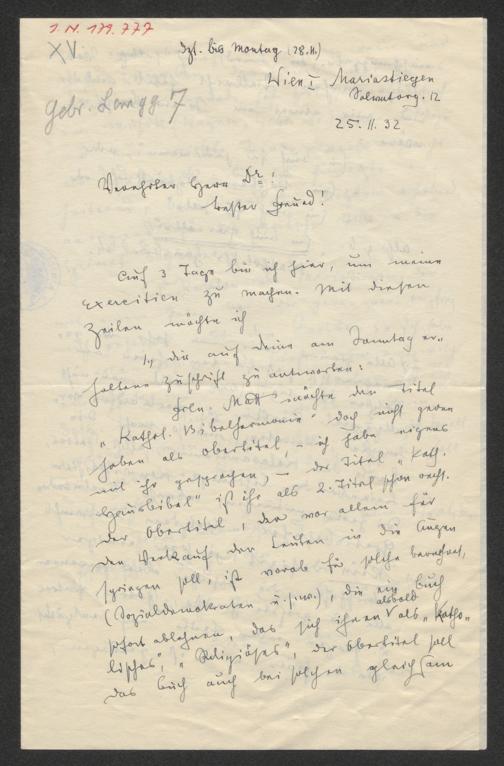 I. N. 179.777
XV.
dzt. bis Montag (28.II.)
Wien I Mariastiegen
Salvatorg. 12
Gebr. Lengg. 7
25. II. 32
Verehrter Herr Dr.,
bester Freund!
Auf 3 Tage bin ich hier, um meine
Exercitien zu machen. Mit diesen
Zeilen möchte ich
1., die auf Deine am Sonntag er-
haltene Zuschrift zu antworten:
Frln. möchte den Titel
„Kathol. Bibelharmonie" doch nicht gerne
haben als Obertitel, – ich habe eigens
mit ihr gesprochen, – der Titel „Kath.
Hausbibel" ist ihr als 2. Titel schon recht.
Der Obertitel, der vor allem für
den Verkauf den Leuten in die Augen
springen soll, ist vorab für solche berechnet,
(Sozialdemokraten u.s.w.), die ein Buch
sofort ablehnen, das sich ihnen alsbald als „Katho-
lisches", „Religiöses", der Obertitel soll
das Buch auch bei solchen gleichsam